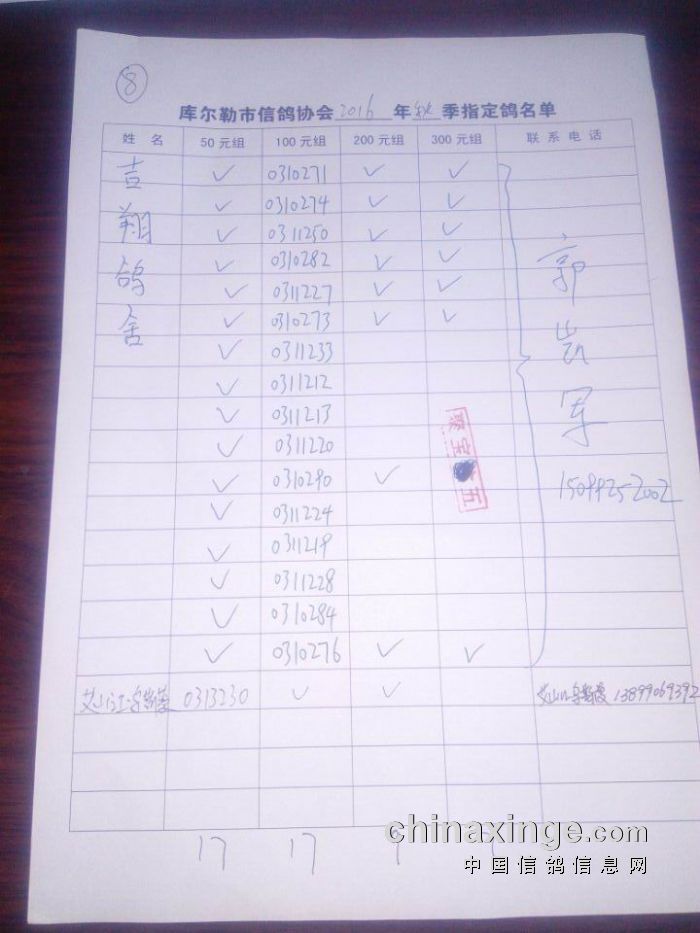 8
库尔勒市信鸽协会2016年秋季指定鸽名单
姓 名 50元组 100元组 200元组 300元组 联系电话
吉翔鸽舍
✓ 0310271 ✓ ✓
✓ 0310274 ✓ ✓
✓ 0311250 ✓ ✓
✓ 0310282 ✓ ✓
✓ 0311227 ✓ ✓
✓ 0310273 ✓ ✓
✓ 0311233
✓ 0311212
✓ 0311213
✓ 0311220
✓ 0310290 ✓
✓ 0311224
✓ 0311219
✓ 0311228
✓ 0310284
✓ 0310276 ✓ ✓
郭岩军
15099252002
0313230 ✓ ✓ 13899069392
17 17
chinaxinge.com
中国信鸽信息网